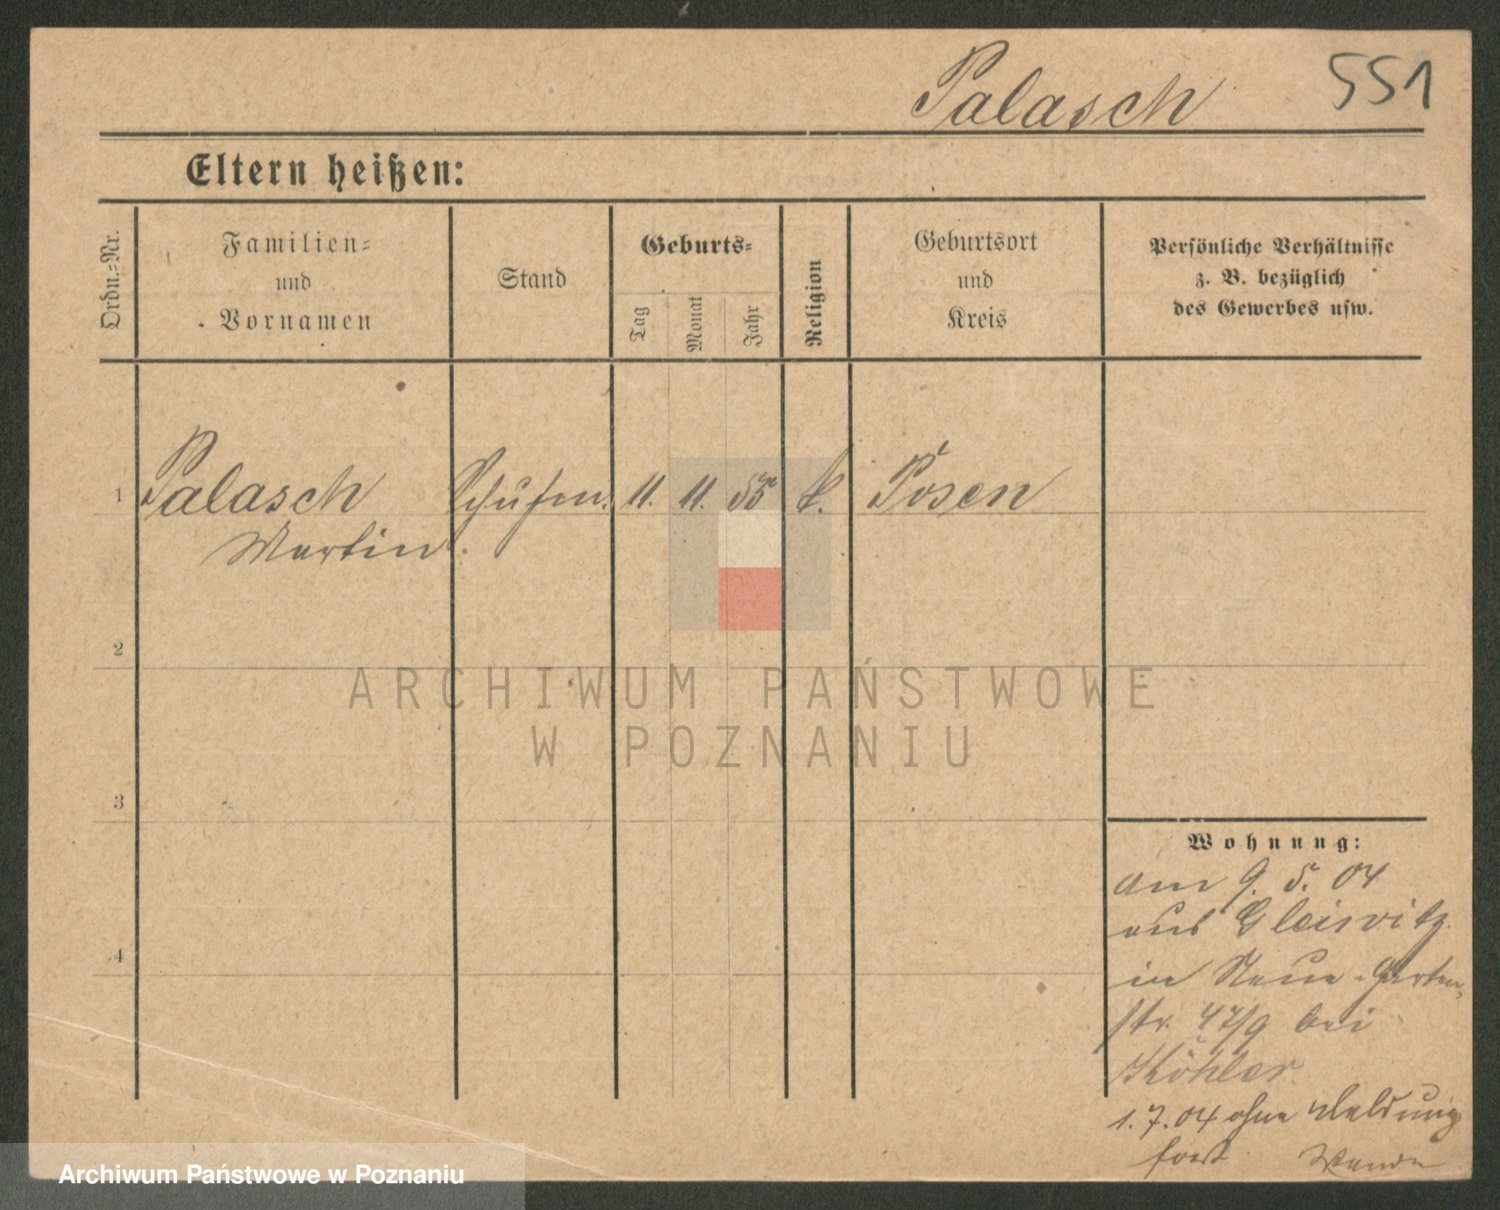 Palasch 551
Eltern heißen:
Ordn.=Nr.
Familien=
und
Vornamen
Stand
Geburts=
Tag
Monat
Jahr
Religion
Geburtsort
und
Kreis
Persönliche Verhältnisse
z. B. bezüglich
des Gewerbes usw.
1 Palasch 11. 11. 55 k. Posen
Martin
2
3
4
Wohnung:
am 9. 5. 04
aus Gleiwitz
in Neue-Garten-
str. 47/9 bei
Köhler.
1.7.04 ohne Meldung
fort
ARCHIWUM PAŃSTWOWE
W POZNANIU
Archiwum Państwowe w Poznaniu